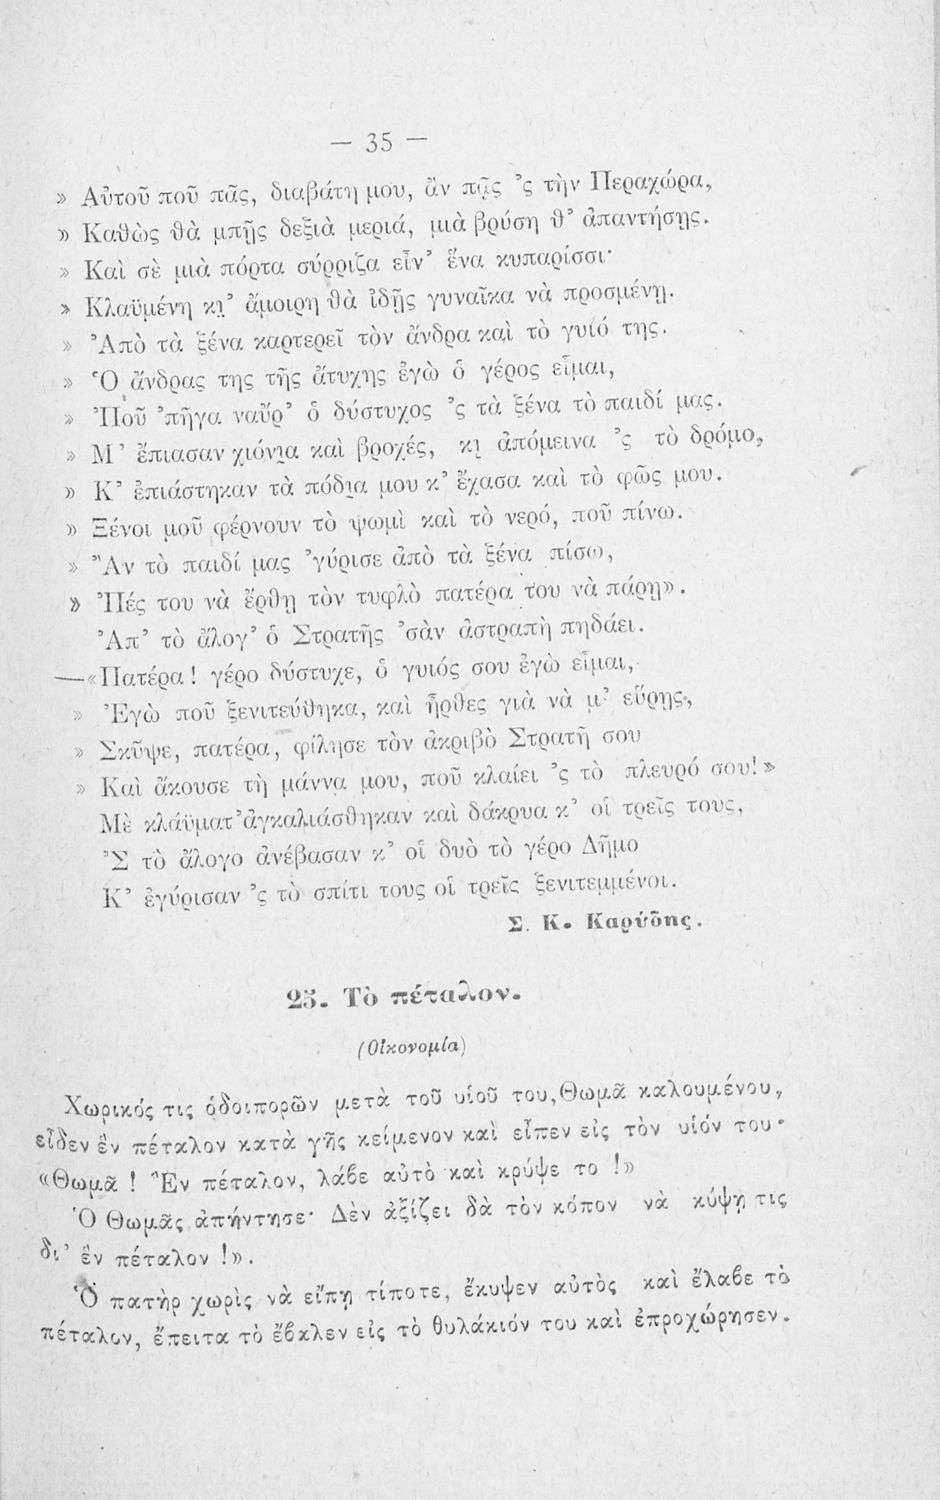 — 35 —
» Αὐτοῦ ποῦ πᾶς, διαβάτη μου, ἂν πᾷς ’ς τὴν Περαχώρα,
» Καθὼς θὰ μπῇς δεξιὰ μεριά, μιὰ βρύση θ’ ἀπαντήσῃς.
» Καὶ σὲ μιὰ πόρτα σύρριζα εἶν’ ἕνα κυπαρίσσι·
» Κλαϋμένη κι̯’ ἄμοιρη θὰ ἰδῇς γυναῖκα νὰ προσμένῃ.
» Ἀπὸ τὰ ξένα καρτερεῖ τὸν ἄνδρα καὶ τὸ γυιό της.
» Ὁ ἄνδρας της τῆς ἄτυχης ἐγὼ ὁ γέρος εἶμαι,
» Ποῦ ’πῆγα ναῦρ’ ὁ δύστυχος ’ς τὰ ξένα τὸ παιδί μας.
» Μ’ ἔπιασαν χιόνι̯α καὶ βροχές, κι̯ ἀπόμεινα ’ς τὸ δρόμο,
» Κ’ ἐπιάστηκαν τὰ πόδι̯α μου κ’ ἔχασα καὶ τὸ φῶς μου.
» Ξένοι μοῦ φέρνουν τὸ ψωμὶ καὶ τὸ νερό, ποῦ πίνω.
» Ἂν τὸ παιδί μας ’γύρισε ἀπὸ τὰ ξένα πίσω,
» Πές του νὰ ἔρθῃ τὸν τυφλὸ πατέρα του νὰ πάρῃ».
Ἀπ’ τὸ ἄλογ’ ὁ Στρατῆς ’σὰν ἀστραπὴ πηδάει.
—«Πατέρα! γέρο δύστυχε, ὁ γυιός σου ἐγὼ εἶμαι,
» Ἐγὼ ποῦ ξενιτεύθηκα, καὶ ἦρθες γιὰ νὰ μ’ εὕρῃς,
» Σκῦψε, πατέρα, φίλησε τὸν ἀκριβὸ Στρατῆ σου
» Καὶ ἄκουσε τὴ μάννα μου, ποῦ κλαίει ’ς τὸ πλευρό σου!»
Μὲ κλάϋματ’ ἀγκαλιάσθηκαν καὶ δάκρυα κ’ οἱ τρεῖς τους,
Σ τὸ ἄλογο ἀνέβασαν κ’ οἱ δυὸ τὸ γέρο Δῆμο
Κ’ ἐγύρισαν ’ς τὸ σπίτι τους οἱ τρεῖς ξενιτεμμένοι.
Σ. Κ. Καρύδης.
25. Τὸ πέταλον.
(Οἰκονομία)
Χωρικός τις ὁδοιπορῶν μετὰ τοῦ υἱοῦ του, Θωμᾶ καλουμένου,
εἶδεν ἓν πέταλον κατὰ γῆς κείμενον καὶ εἶπεν εἰς τὸν υἱόν του·
«Θωμᾶ ! Ἓν πέταλον, λάβε αὐτὸ καὶ κρύψε το !»
Ὁ Θωμᾶς ἀπήντησε· Δὲν ἀξίζει δὰ τὸν κόπον νὰ κύψῃ τις
δι’ ἓν πέταλον !».
Ὁ πατὴρ χωρὶς νὰ εἴπῃ τίποτε, ἔκυψεν αὐτὸς καὶ ἔλαβε τὸ
πέταλον, ἔπειτα τὸ ἔβαλεν εἰς τὸ θυλάκιόν του καὶ ἐπροχώρησεν.